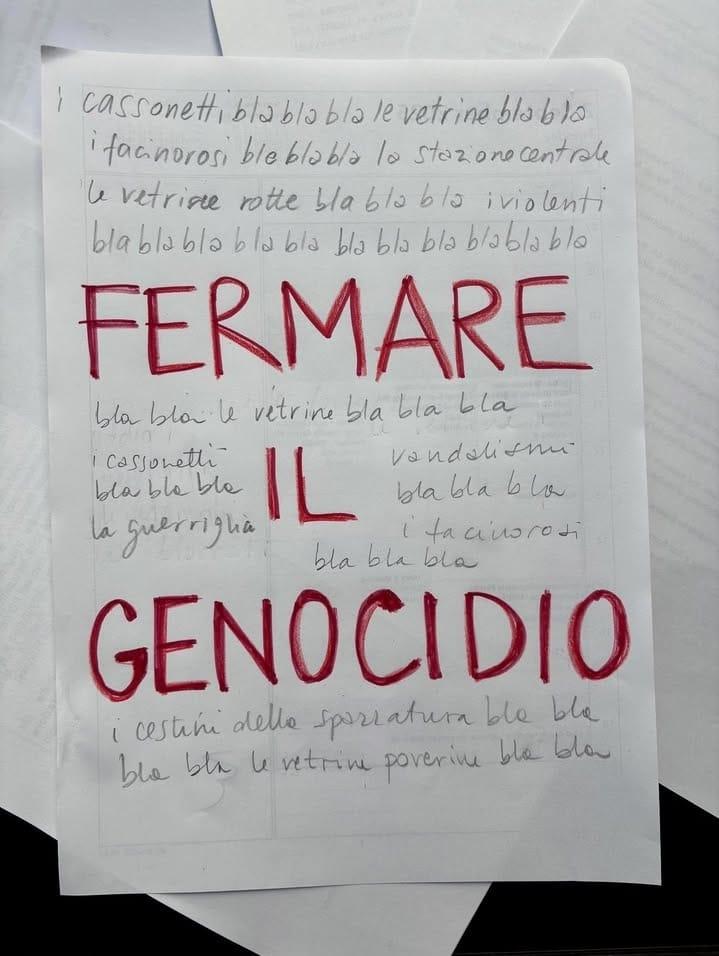 i cassonetti bla bla bla le vetrine bla bla
i facinorosi ble bla bla la stazione centrale
le vetrine rotte bla bla bla i violenti
bla bla bla bla bla bla bla bla bla bla bla
FERMARE
bla bla le vetrine bla bla bla
i cassonetti
bla bla bla
la guerriglia
IL
vandalismi
bla bla bla
i facinorosi
bla bla bla
GENOCIDIO
i cestini della spazzatura bla bla
bla bla le vetrine poverine bla bla